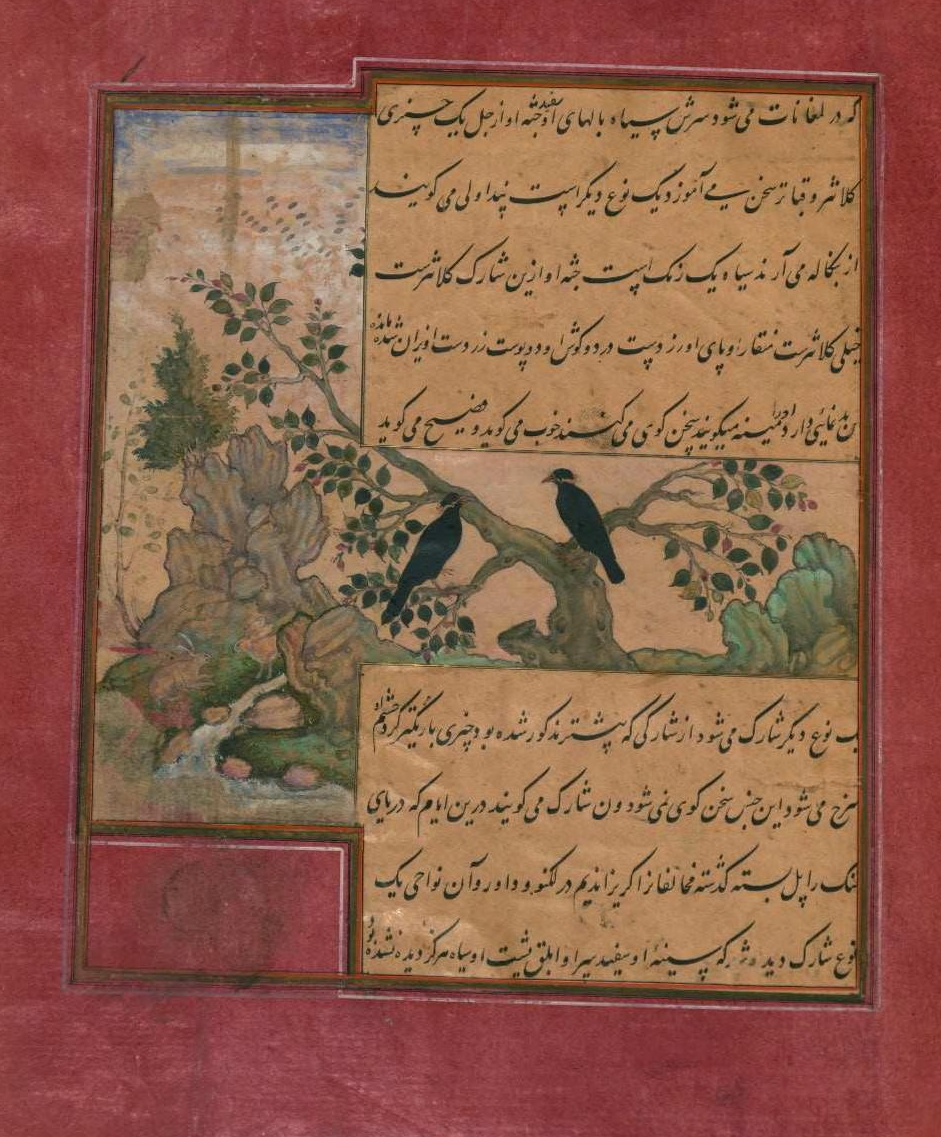 که در لمغانات می شود سرش سیاه بالهای او سفید جثه او از جل یک چیزی
کلانتر و قبا تر سخن می آموزد یک نوع دیگر است پندا ولی می گویند
از بنگاله می آرند سیاه یک رنگ است جثه او ازین شارک کلانترست
خیلی کلانترست منقار او پای او زردست در دو گوش او دو پوست زردست آویزان شده مانده
بدنمائی دارد او را مینه میگویند سخن گوی می کنند خوب می گوید و فصیح می گوید
یک نوع دیگر شارک می شود از شارکی که پیشتر مذکور شده بود چیزی باریکتر گرد چشم او
سرخ می شود این جنس سخن گوی نمی شود ون شارک می گویند درین ایام که دریای
گنگ را پل بسته گذشته مخالفانرا گریزاندیم در لکنو و داور و آن نواحی یک
نوع شارک دیده شد که سینهٔ او سفید سر او ابلق پشت او سیاه هرگز دیده نشده بود